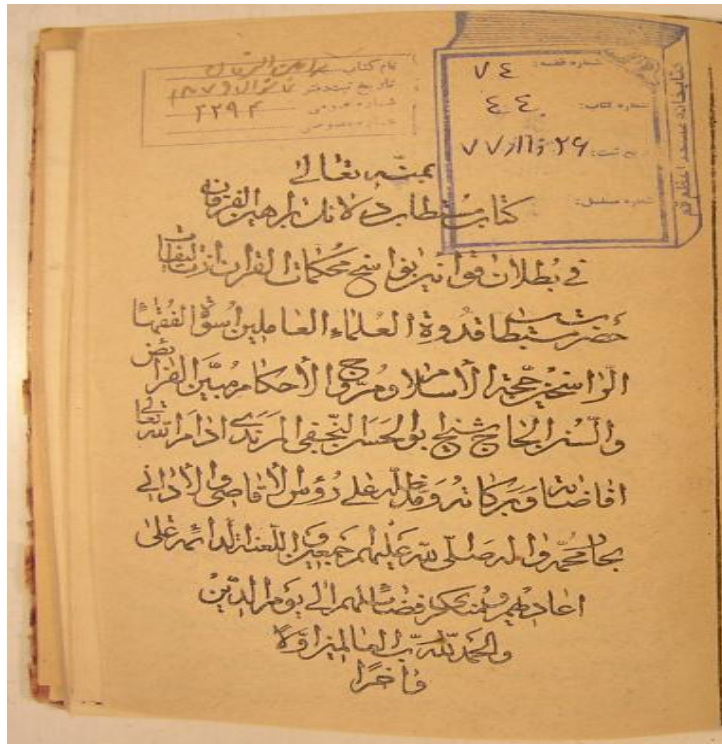 نام کتاب براهین الفرقان
تاریخ ثبت دفتر
شماره عمومی ۲۲۹۴
شماره خصوصی
شماره قفسه: ۷٤
شماره کتاب: ٤٤
تاریخ ثبت: ۷۷ر۱۱ر۲۶
شماره مسلسل:
کتابخانه مسجد اعظم قم
بمنّه تعالی
کتاب مستطاب دلائل براهین الفرقان
فی بطلان قوانین نواسخ محکمات القرآن از تالیفات
حضرت مستطاب قدوة العلماء العاملین اسوة الفقهاء
الرّاسخین حجّة الأسلام و مروّج الأحکام مبیّن الفرائض
والسّنن الحاج شیخ ابوالحسن النّجفی المرندی ادام الله تعالی
افاضاته و برکاته و مدّ ظلّه علی رؤس الأقاصی والأدانی
بجاه محمّد و اله صلّی الله علیهم اجمعین و اللعنة الدائمة علی
اعادیهم و منکر فضائلهم الی یوم الدّین
والحمد لله ربّ العالمین اوّلا
و اخرًا